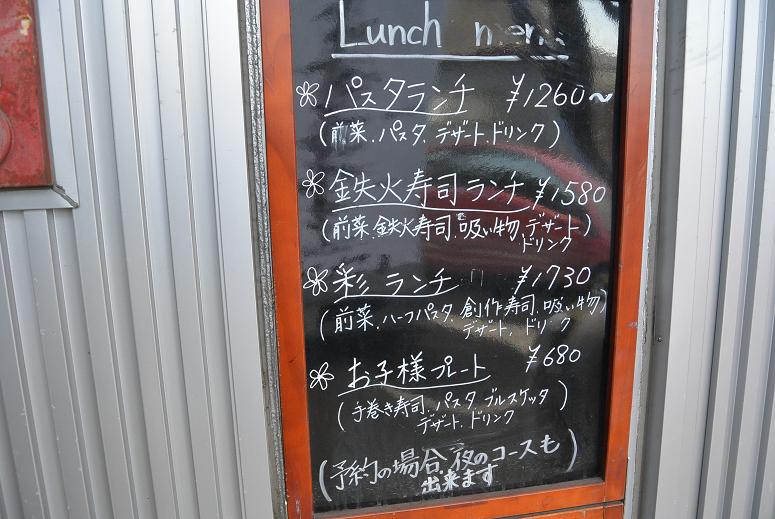 Lunch menu
パスタランチ ¥1260～
(前菜、パスタ、デザート、ドリンク)
鉄火寿司ランチ ¥1580
(前菜、鉄火寿司、吸い物、デザート
ドリンク)
彩ランチ ¥1730
(前菜、ハーフパスタ、創作寿司、吸い物
デザート、ドリンク)
お子様プレート ¥680
(手巻き寿司、パスタ、ブルスケッタ
デザート、ドリンク)
(予約の場合、夜のコースも
出来ます)